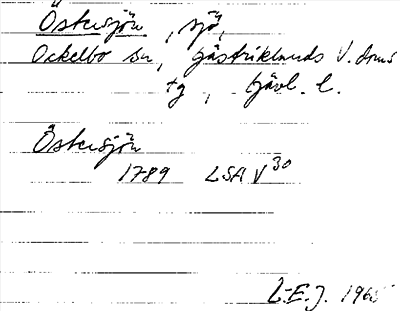 Östersjön, sjö,
Ockelbo sn, Gästriklands V. doms
tg, Gävl. l.
Östersjön
1789 LSA V 30
L.E.J. 196